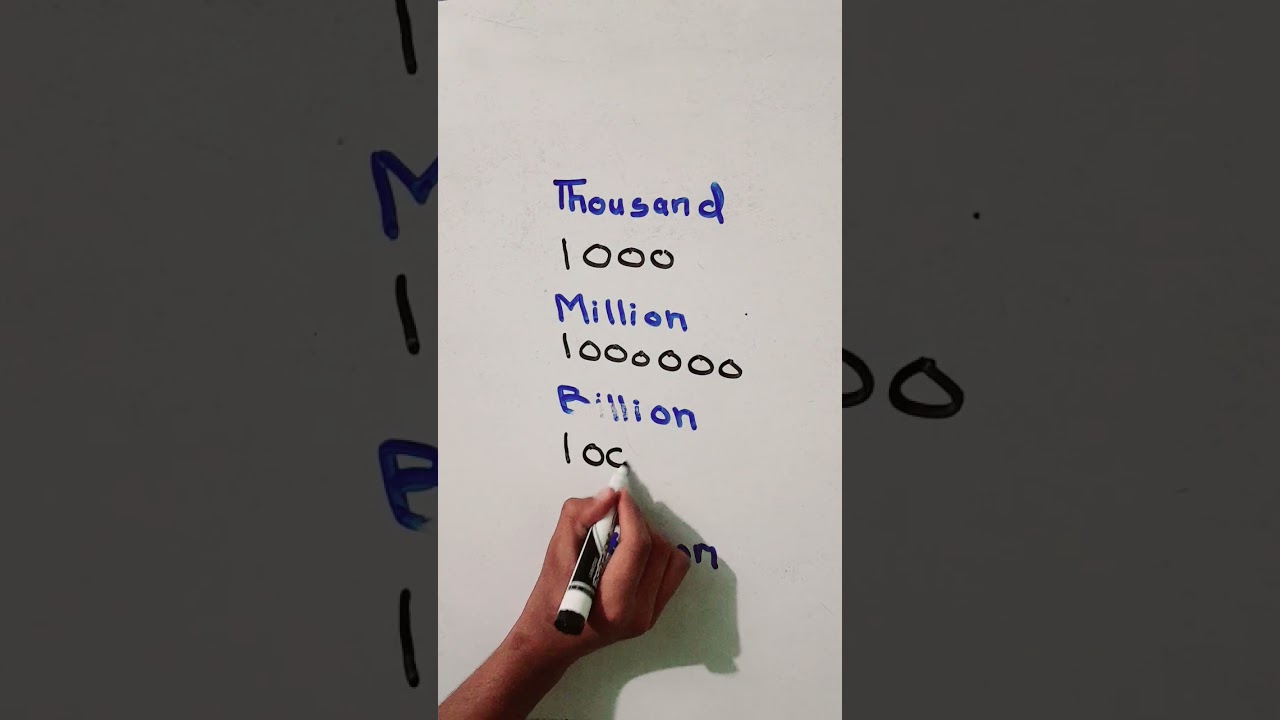 Thousand
1000
Million
1000000
Billion
100